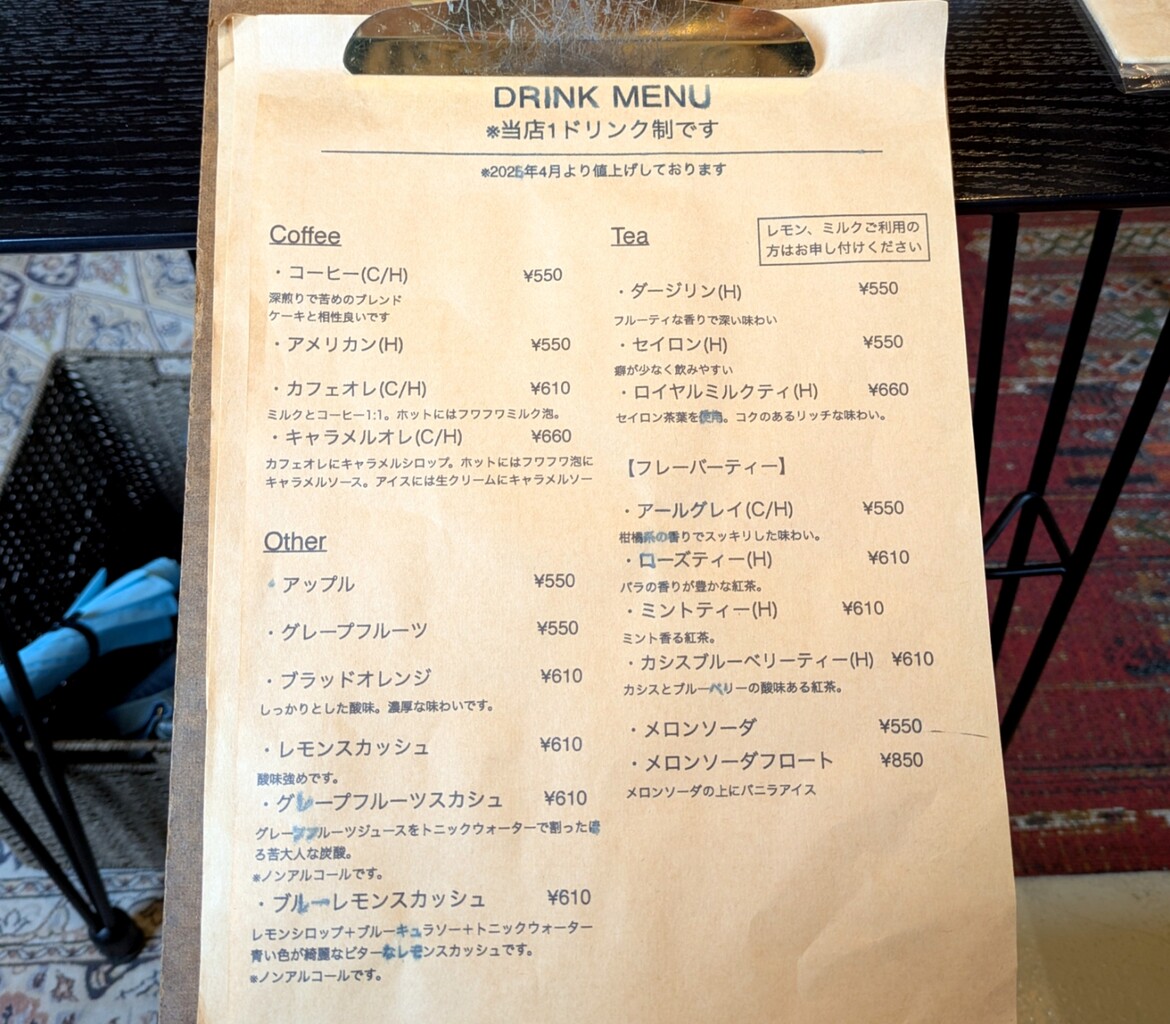 DRINK MENU
※当店1ドリンク制です
※2025年4月より値上げしております
Coffee
・コーヒー(C/H) ¥550
深煎りで苦めのブレンド
ケーキと相性良いです
・アメリカン(H) ¥550
・カフェオレ(C/H) ¥610
ミルクとコーヒー1:1。ホットにはフワフワミルク泡。
・キャラメルオレ(C/H) ¥660
カフェオレにキャラメルシロップ。ホットにはフワフワ泡に
キャラメルソース。アイスには生クリームにキャラメルソー
Other
・アップル ¥550
・グレープフルーツ ¥550
・ブラッドオレンジ ¥610
しっかりとした酸味。濃厚な味わいです。
・レモンスカッシュ ¥610
酸味強めです。
・グレープフルーツスカシュ ¥610
グレープフルーツジュースをトニックウォーターで割ったほ
ろ苦大人な炭酸。
※ノンアルコールです。
・ブルーレモンスカッシュ ¥610
レモンシロップ+ブルーキュラソー+トニックウォーター
青い色が綺麗なビターなレモンスカッシュです。
※ノンアルコールです。
Tea
レモン、ミルクご利用の
方はお申し付けください
・ダージリン(H) ¥550
フルーティな香りで深い味わい
・セイロン(H) ¥550
癖が少なく飲みやすい
・ロイヤルミルクティ(H) ¥660
セイロン茶葉を使用。コクのあるリッチな味わい。
【フレーバーティー】
・アールグレイ(C/H) ¥550
柑橘系の香りでスッキリした味わい。
・ローズティー(H) ¥610
バラの香りが豊かな紅茶。
・ミントティー(H) ¥610
ミント香る紅茶。
・カシスブルーベリーティー(H) ¥610
カシスとブルーベリーの酸味ある紅茶。
・メロンソーダ ¥550
・メロンソーダフロート ¥850
メロンソーダの上にバニラアイス